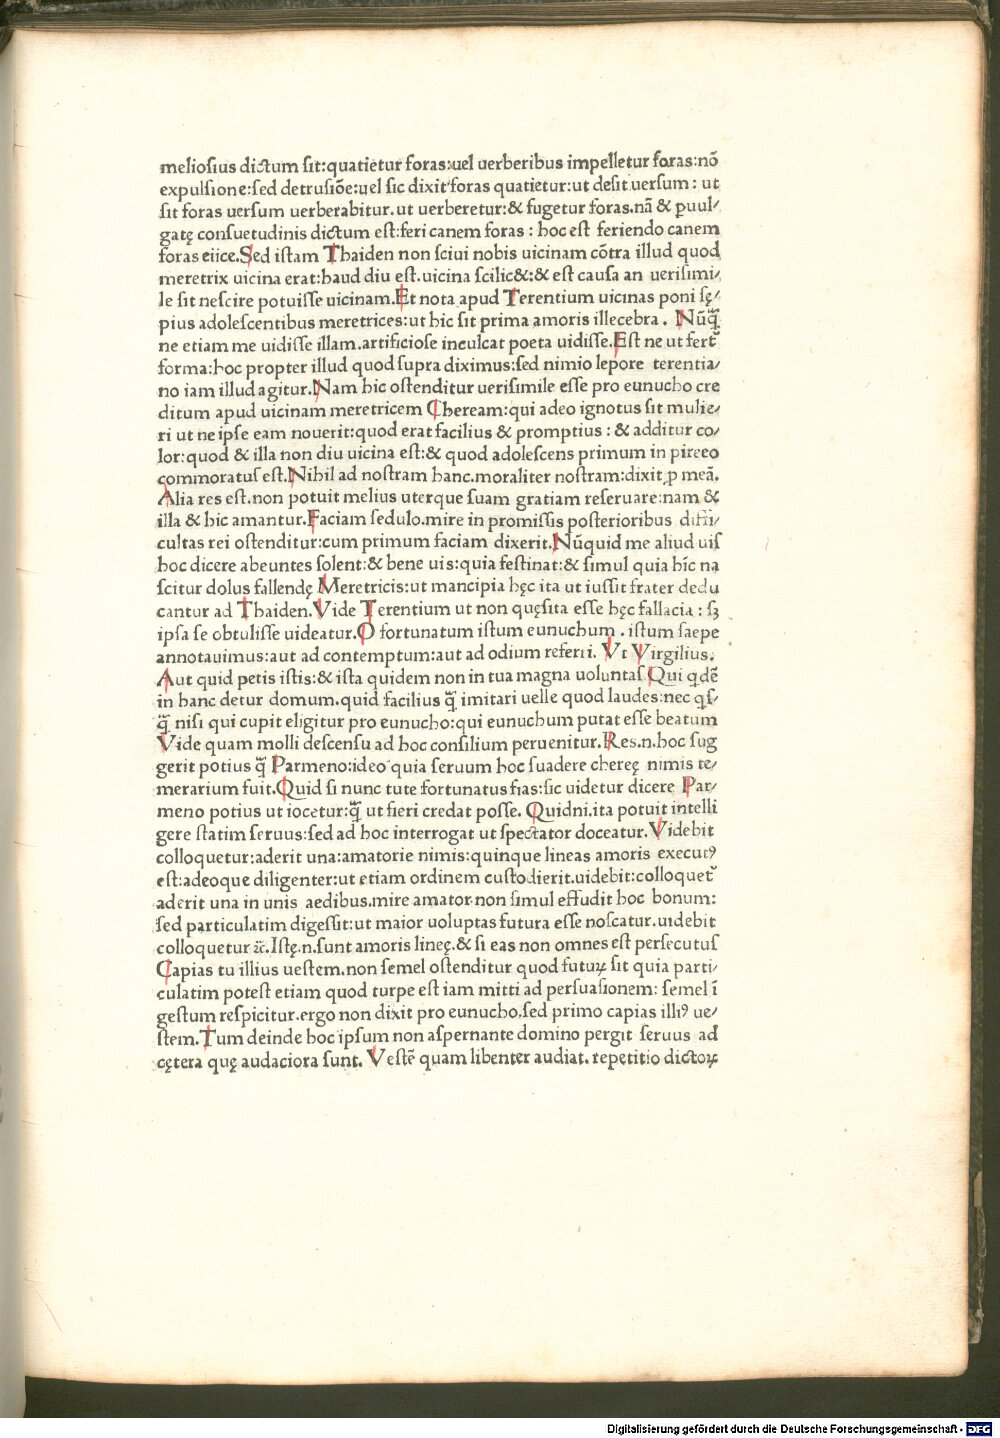 meliosius dictum sit:quatietur foras:uel uerberibus impelletur foras:nō
expulsione:sed detrusiōe:uel sic dixit foras quatietur:ut desit uersum: ut
sit foras uersum uerberabitur.ut uerberetur:& fugetur foras.nā & ꝑuul⸗
gatę consuetudinis dictum est:feri canem foras : hoc est feriendo canem
foras eiice.Sed istam Thaiden non sciui nobis uicinam cōtra illud quod
meretrix uicina erat:haud diu est.uicina scilic&:& est causa an uerisimi⸗
le sit nescire potuisse uicinam.Et nota apud Terentium uicinas poni sę⸗
pius adolescentibus meretrices:ut hic sit prima amoris illecebra . Nūq̄
ne etiam me uidisse illam.artificiose inculcat poeta uidisse.Est ne ut fert᷑
forma:hoc propter illud quod supra diximus:sed nimio lepore terentia⸗
no iam illud agitur.Nam hic ostenditur uerisimile esse pro eunucho cre
ditum apud uicinam meretricem Cheream:qui adeo ignotus sit mulie⸗
ri ut ne ipse eam nouerit:quod erat facilius & promptius : & additur co⸗
lor:quod & illa non diu uicina est:& quod adolescens primum in pireeo
commoratus est.Nihil ad nostram hanc.moraliter nostram:dixit ꝓ meā.
Alia res est.non potuit melius uterque suam gratiam reseruare:nam &
illa & hic amantur.Faciam sedulo.mire in promissis posterioribus diffi⸗
cultas rei ostenditur:cum primum faciam dixerit.Nūquid me aliud uis
hoc dicere abeuntes solent:& bene uis:quia festinat:& simul quia hīc na
scitur dolus fallendę Meretricis:ut mancipia hęc ita ut iussit frater dedu
cantur ad Thaiden.Vide Terentium ut non quęsita esse hęc fallacia : sꝫ
ipsa se obtulisse uideatur.O fortunatum istum eunuchum . istum saepe
annotauimus:aut ad contemptum:aut ad odium referri. Vt Virgilius.
Aut quid petis istis:& ista quidem non in tua magna uoluntas Qui qdē
in hanc detur domum.quid facilius q̄ imitari uelle quod laudes:nec qs⸗
q̄ nisi qui cupit eligitur pro eunucho:qui eunuchum putat esse beatum
Vide quam molli descensu ad hoc consilium peruenitur.Res.n.hoc sug
gerit potius q̄ Parmeno:ideo quia seruum hoc suadere cherę nimis te⸗
merarium fuit.Quid si nunc tute fortunatus fias:sic uidetur dicere Par⸗
meno potius ut iocetur:q̄ ut fieri credat posse. Quidni.ita potuit intelli
gere statim seruus:sed ad hoc interrogat ut spectator doceatur.Videbit
colloquetur:aderit una:amatorie nimis:quinque lineas amoris executꝰ
est:adeoque diligenter:ut etiam ordinem custodierit.uidebit:colloquet᷑
aderit una in unis aedibus.mire amator non simul effudit hoc bonum:
sed particulatim digessit:ut maior uoluptas futura esse noscatur.uidebit
colloquetur ⁊c̄.Istę.n.sunt amoris lineę.& si eas non omnes est persecutus
Capias tu illius uestem.non semel ostenditur quod futuꝝ sit quia parti⸗
culatim potest etiam quod turpe est iam mitti ad persuasionem: semel ī
gestum respicitur.ergo non dixit pro eunucho.sed primo capias illiꝰ ue⸗
stem.Tum deinde hoc ipsum non aspernante domino pergit seruus ad
cętera quę audaciora sunt. Vestē quam libenter audiat. repetitio dictoꝝ
Digitalisierung gefördert durch die Deutsche Forschungsgemeinschaft - DFG